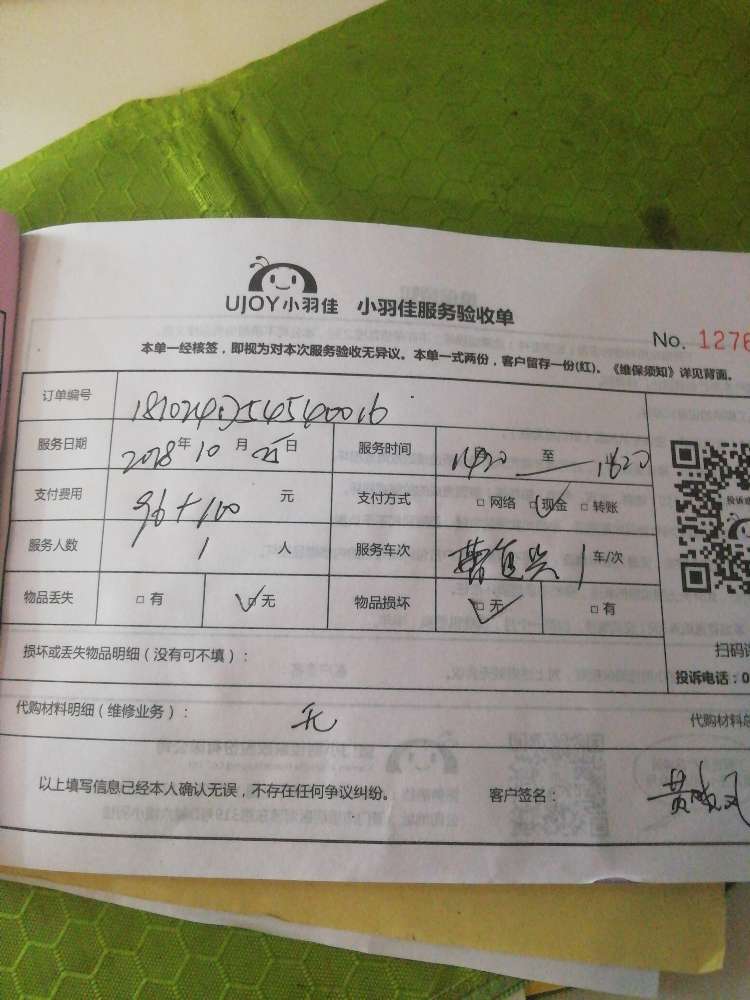 UJOY小羽佳 小羽佳服务验收单
No. 1276
本单一经核签，即视为对本次服务验收无异议。本单一式两份，客户留存一份(红)。《维保须知》详见背面。
订单编号
服务日期 2018年 10 月 25 日 服务时间 1420 至 1620
支付费用 96+100 元 支付方式 □ 网络 □ 现金 □ 转账
服务人数 1 人 服务车次 1 车/次
物品丢失 □ 有 □ 无 物品损坏 □ 无 □ 有
损坏或丢失物品明细（没有可不填）：
扫码
投诉电话：0
代购材料明细（维修业务）： 无 代购材料总
以上填写信息已经本人确认无误，不存在任何争议纠纷。 客户签名：